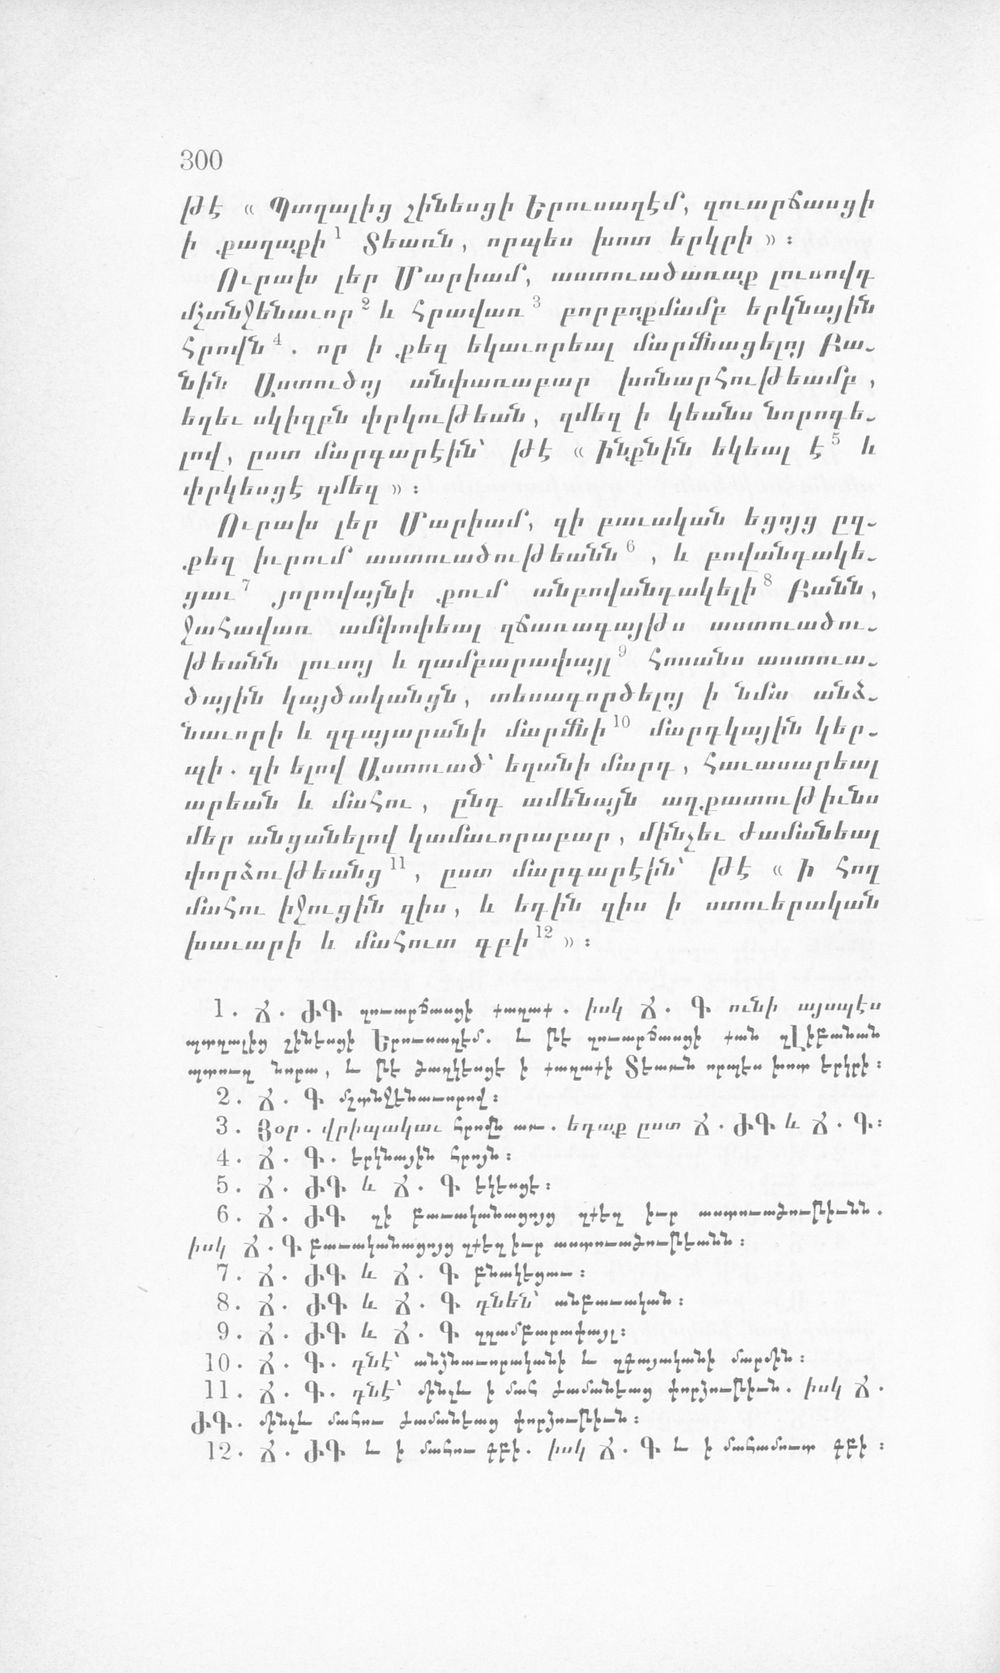 300
թէ « Պտղալից չինեսցի Երուսաղէմ, զուարճասցի
ի քաղաքի 1 Տեառն, որպես խոտ երկրի » :
Ուրախ լեր Մարիամ, աստուածառաք լուսովդ
մշտնջենաւոր 2 և հրավառ 3 բորբոքմամբ երկնային
հրովն 4 . որ ի քեզ եկաւորեալ մարմնացելոյ Բա֊
նին Աստուծոյ անփառաբար խոնարհութեամբ ,
եղեւ սկիզբն փրկութեան, զմեզ ի կեանս նորոգե֊
լով, ըստ մարգարէին՝ թէ « Ինքնին եկեալ է 5 և
փրկեսցէ զմեզ » :
Ուրախ լեր Մարիամ, զի բաւական եցոյց ըզ֊
քեզ իւրում աստուածութեանն 6 , և բովանդակե֊
ցաւ 7 յորովայնի քում անբովանդակելի 8 Բանն,
ջահավառ ամփոփեալ զճառագայթս աստուածու֊
թեանն լուսոյ և զամբարափայլ 9 հոսանս աստուա֊
ծային կայծականցն, տեսագործելոյ ի նմա անձ֊
նաւորի և զգայարանի մարմնի 10 մարդկային կեր֊
պի . զի ելով Աստուած՝ եղանի մարդ, հաւասարեալ
արեան և մահու, ընդ ամենայն աղքատութիւնս
մեր անցանելով կամաւորաբար, մինչեւ ժամանեալ
փորձութեանց 11 , ըստ մարգարէին՝ թէ « Ի հող
մահու իջուցին զիս, և եդին զիս ի ստուերական
խաւարի և մահուտ գբի 12 » :
1. Ճ. ԺԳ զուարճասցի քաղաք . իսկ Ճ. Գ ունի այսպէս
պտղալից շինեսցի Երուսաղէմ. և թէ զուարճասցի քան զԼիբանան
պտուղ նորա, և թէ ծաղկեսցէ ի քաղաքի Տեառն որպես խոտ երկրի :
2. Ճ. Գ մշտնջենաւորով :
3. Յօր. վրիպակաւ հրովն առ. եդաք ըստ Ճ. ԺԳ և Ճ. Գ :
4. Ճ. Գ. երկնային հրոյն :
5. Ճ. ԺԳ և Ճ. Գ եկեսցէ :
6. Ճ. ԺԳ զի բաւականացոյց զքեզ իւր աստուածութիւնն .
իսկ Ճ. Գ բաւականացոյց զքեզ իւր աստուածութեանն :
7. Ճ. ԺԳ և Ճ. Գ բնակեցաւ :
8. Ճ. ԺԳ և Ճ. Գ դնեն՝ անբաւական :
9. Ճ. ԺԳ և Ճ. Գ զզամբարափայլ :
10. Ճ. Գ. դնէ՝ անձնաւորականի և զգայականի մարմին :
11. Ճ. Գ. դնէ՝ մինչև ի մահ ժամանեաց փորձութիւն. իսկ Ճ.
ԺԳ. մինչև մահու ժամանեաց փորձութիւն :
12. Ճ. ԺԳ և ի մահու գբի. իսկ Ճ. Գ և ի մահամուտ գբի :